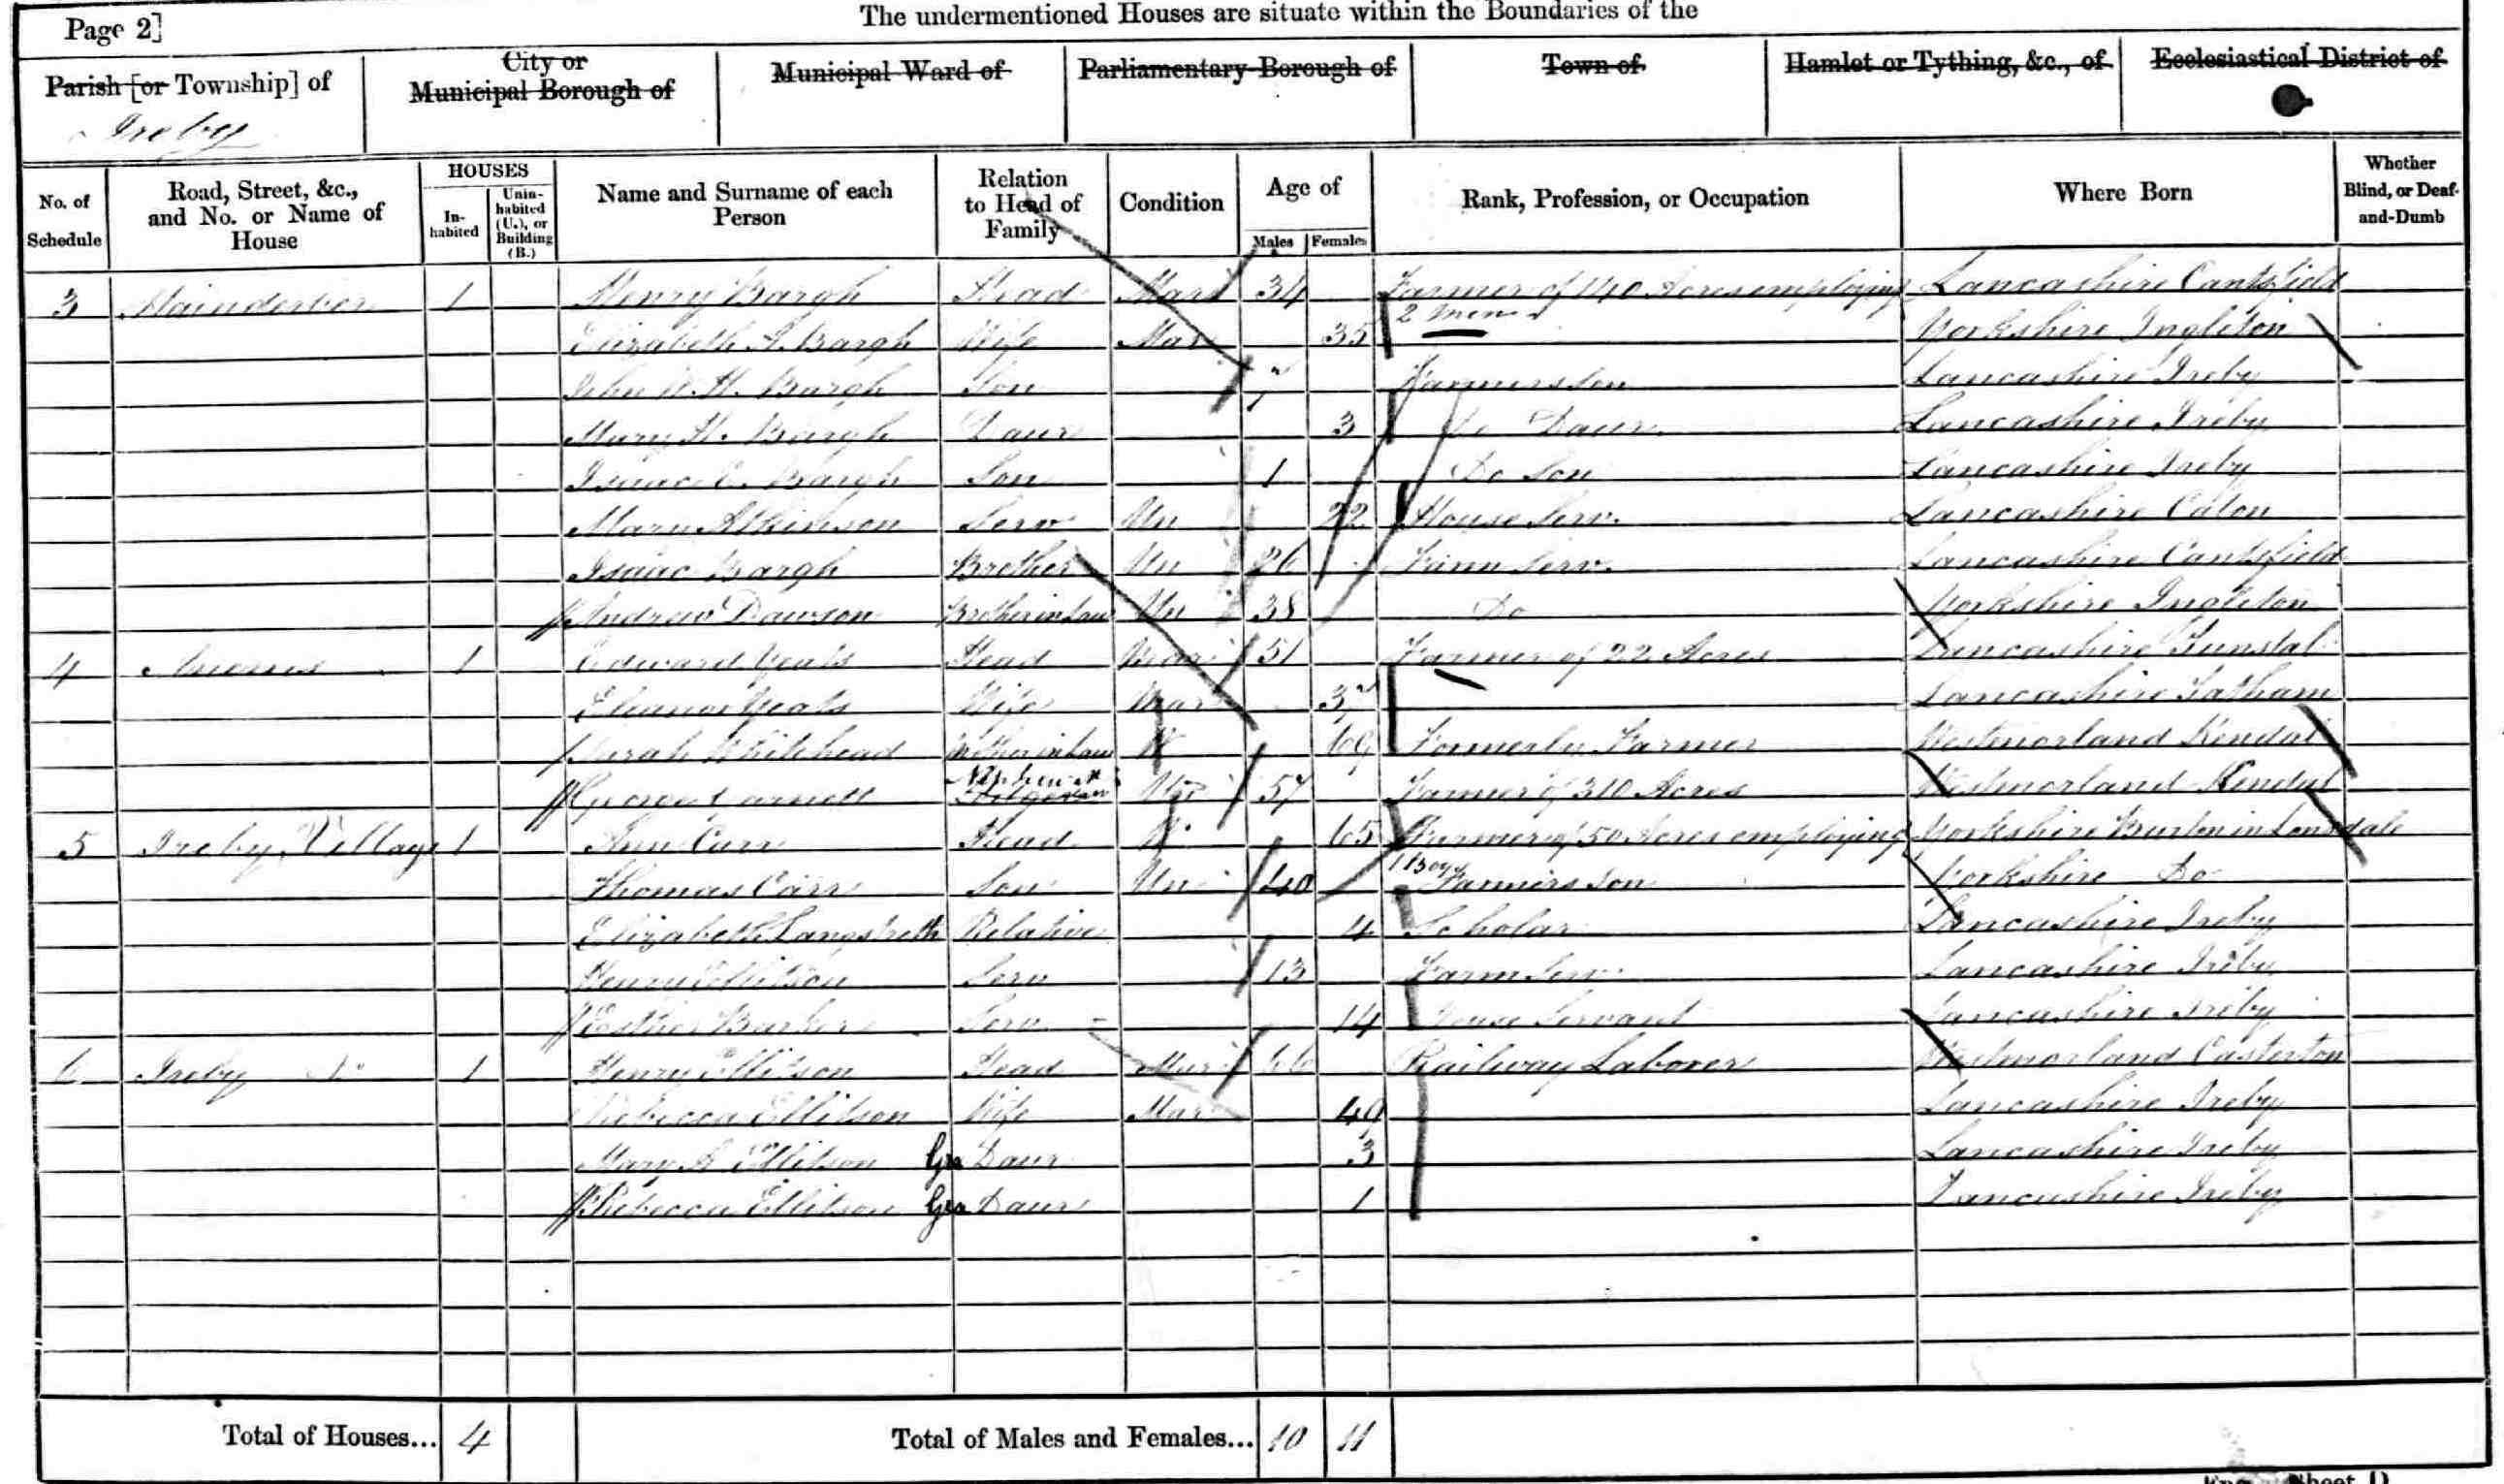 The undermentioned Houses are situate within the Boundaries of the
Page 2]
Parish [or Township] of
City or Municipal Borough of
Municipal Ward of
Parliamentary Borough of
Town of
Hamlet or Tything, &c., of
Ecclesiastical District of
Ireby
No. of Schedule
Road, Street, &c., and No. or Name of House
HOUSES
In-habited
Unin-habited (U.), or Building (B.)
Name and Surname of each Person
Relation to Head of Family
Condition
Age of
Males
Females
Rank, Profession, or Occupation
Where Born
Whether Blind, or Deaf-and-Dumb
3 1 Henry Bargh Head Mar 34 Farmer of 140 Acres employing 2 men Lancashire Cantsfield
Elizabeth A. Bargh Wife Mar 35 Yorkshire Ingleton
John Bargh Son Farmers Son Lancashire Ireby
Mary H. Bargh Daur 3 Do Daur Lancashire Ireby
Isaac Bargh Son 1 Do Son Lancashire Ireby
Mary Atkinson Serv Un 22 House Serv. Lancashire Caton
Isaac Bargh Brother Un 26 Farm Serv. Lancashire Cantsfield
Andrew Dawson Brother in Law Un 38 Do Yorkshire Ingleton
4 1 Edward Yeats Head Mar 51 Farmer of 22 Acres Lancashire Tunstal
Eleanor Yeats Wife Mar Lancashire Tatham
Sarah Whitehead Mother in Law W 69 Formerly Farmer Westmorland Kendal
George Un 57 Farmer of 310 Acres Westmorland Kendal
5 Ireby Village 1 Ann Carr Head W 65 Farmer of 50 Acres employing 1 Boy Yorkshire Burton in Lonsdale
Thomas Carr Son Un 40 Farmers Son Yorkshire Do
Elizabeth Langstreth Relative 4 Scholar Lancashire Ireby
Henry Ellitson Serv 13 Farm Serv Lancashire Ireby
Esther Barker Serv 14 House Servant Lancashire Ireby
6 Ireby 1 Henry Ellitson Head Mar Railway Laborer Westmorland Casterton
Rebecca Ellitson Wife Mar 49 Lancashire Ireby
Mary A Ellitson Gr Daur 3 Lancashire Ireby
Rebecca Ellitson Gr Daur 1 Lancashire Ireby
Total of Houses... 4
Total of Males and Females... 10 11